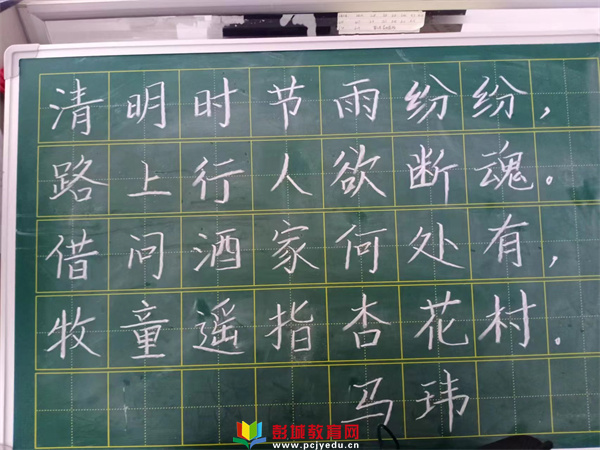 清明时节雨纷纷，
路上行人欲断魂。
借问酒家何处有，
牧童遥指杏花村.
马玮
彭城教育网
www.pcjyedu.cn